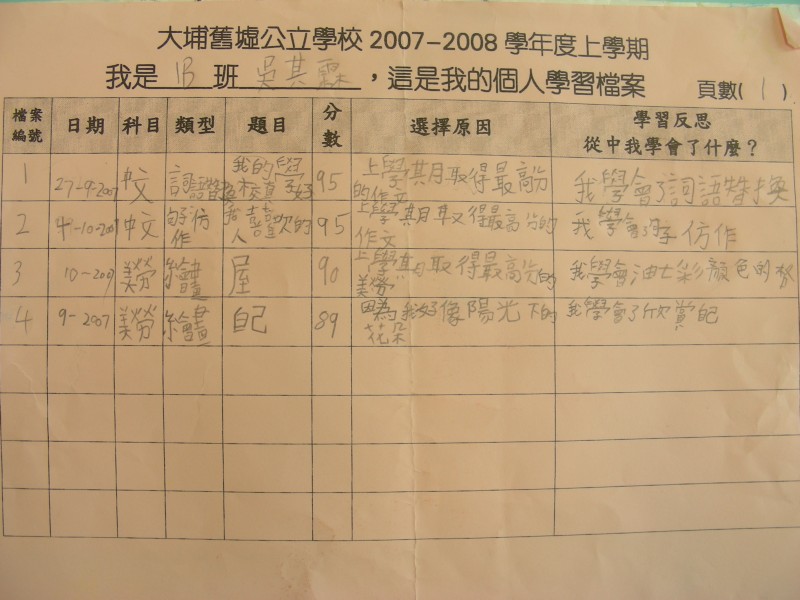 大埔舊墟公立學校 2007-2008 學年度上學期
我是 1B 班 吳其霖 ，這是我的個人學習檔案 頁數( 1 )
檔案編號 日期 科目 類型 題目 分數 選擇原因 學習反思
從中我學會了什麼？
1 27-9-2007 中文 詞語替換 我的學校真好 95 上學其月取得最高分的作文 我學會了詞語替換
2 4-10-2007 中文 句子仿作 我喜歡的人 95 上學其月取得最高分的作文 我學會了句子仿作
3 10-2007 美勞 繪畫 屋 90 上學其月取得最高分的美勞 我學會油士彩顏色的
4 9-2007 美勞 繪畫 自己 89 因為我好像陽光下的花朵 我學會了欣賞自己